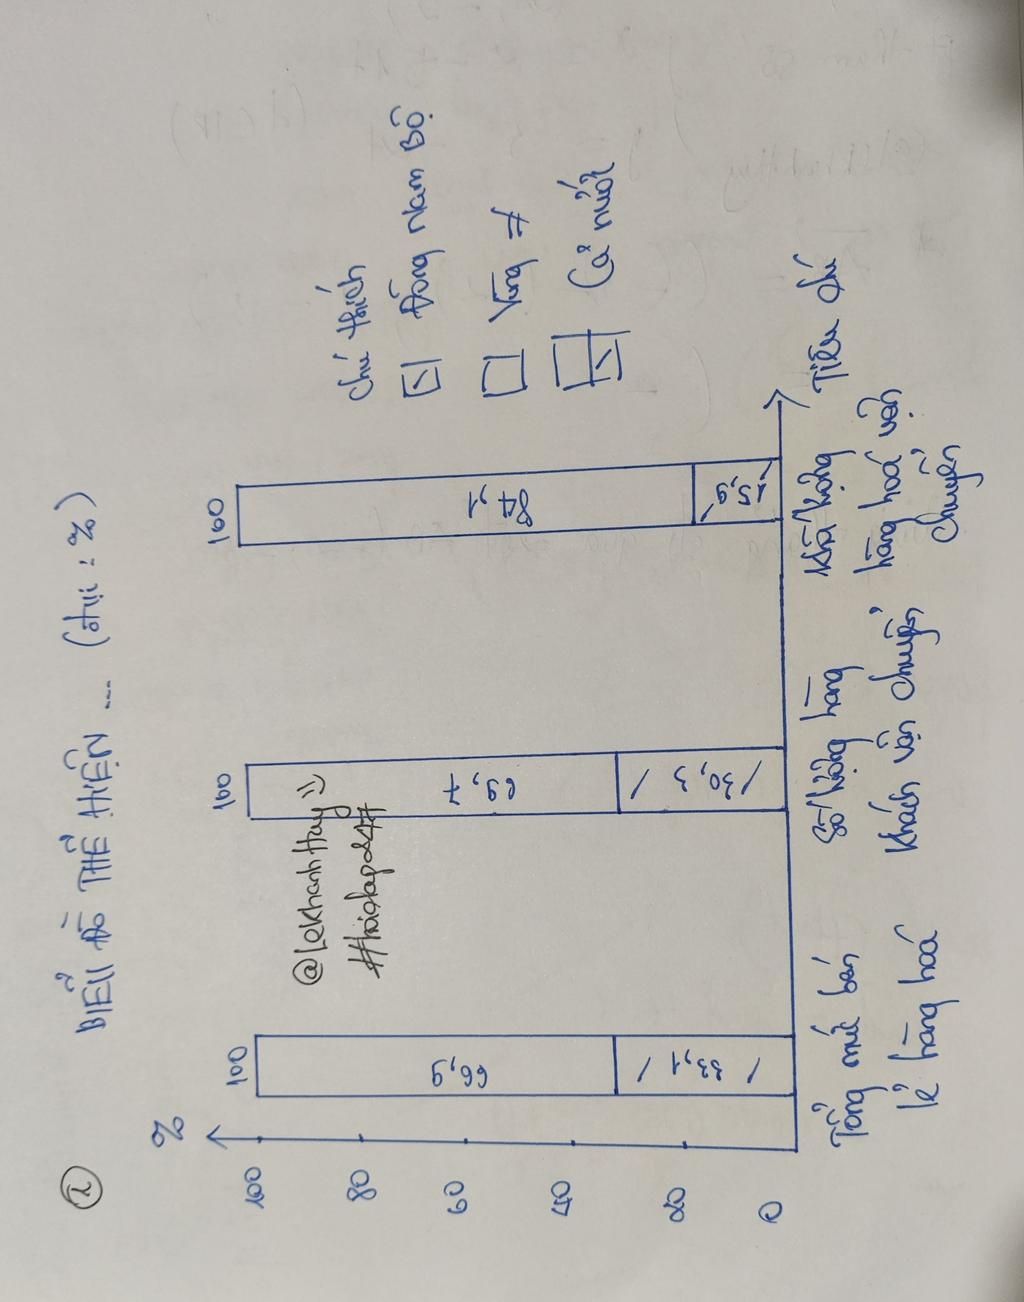 ②
BIỂU ĐỒ THỂ HIỆN ... (đvị : %)
%
100
80
60
40
20
0
100
66,9
33,1
100
69,7
30,3
100
84,1
15,9
@LeKhanhHuy =))
Tổng mức bán
lẻ hàng hoá
Số lượng hàng
khách vận chuyển
Khối lượng
hàng hoá vận
chuyển
Tiêu chí
Chú thích
Đông Nam Bộ
Vùng ≠
Cả nước